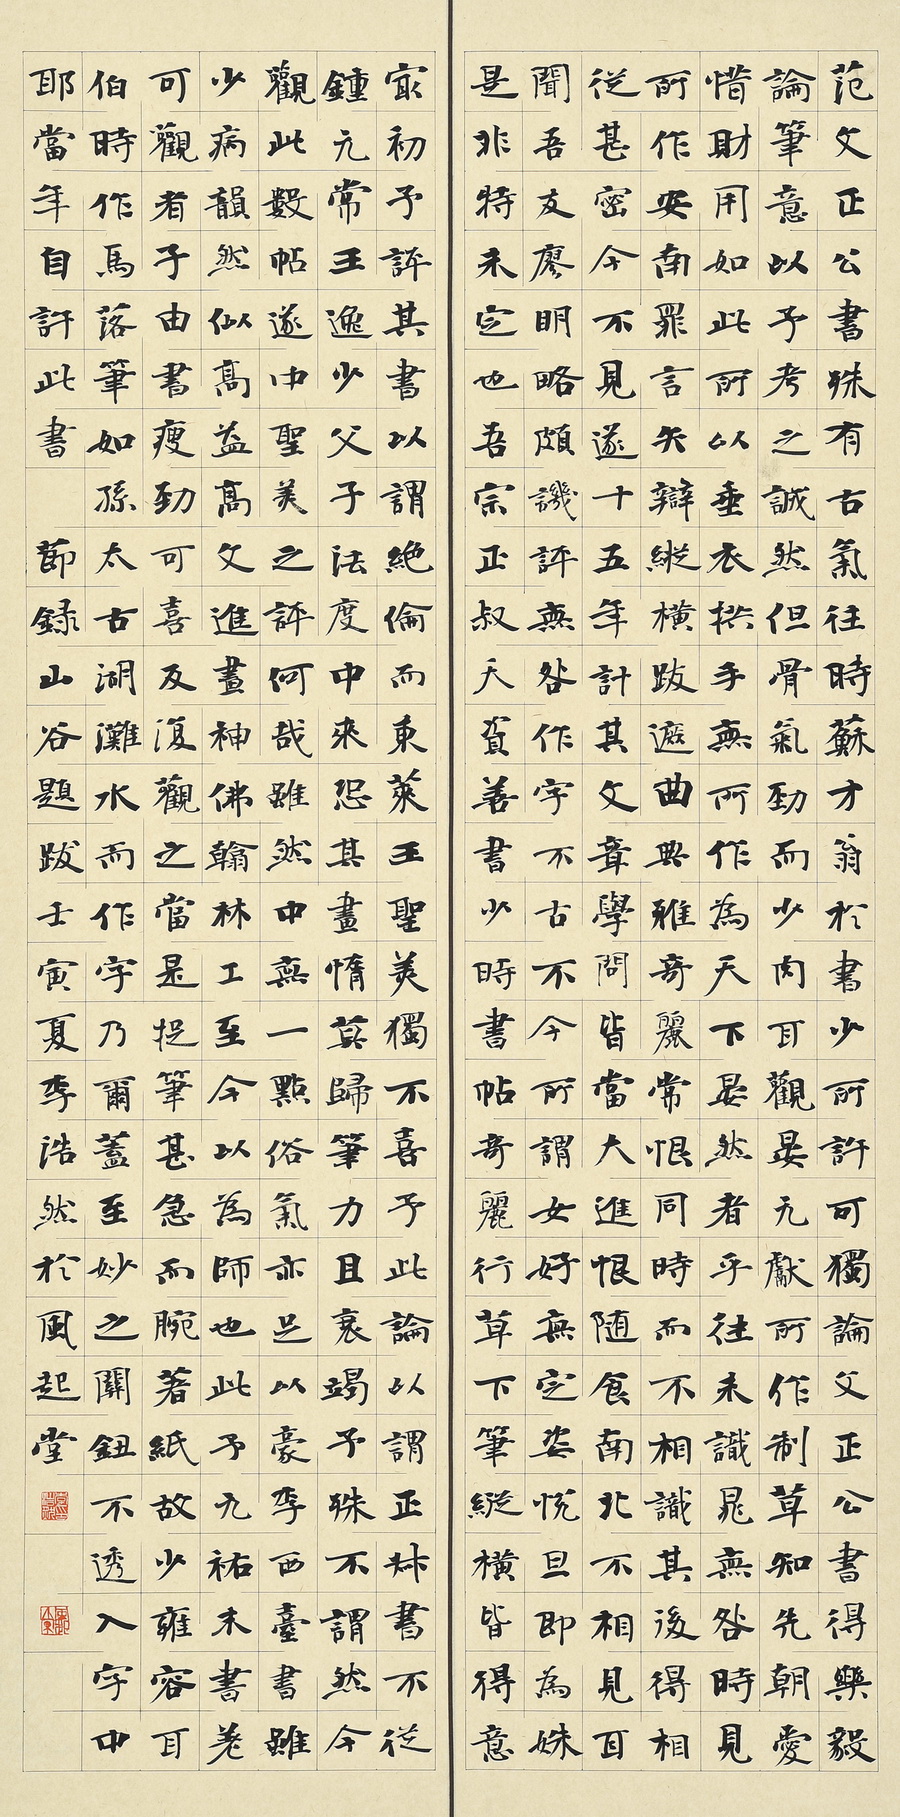 范文正公書殊有古氣往時蘇才翁於書少所許可獨論文正公書得樂毅
論筆意以予考之誠然但骨氣勁而少肉耳觀晏元獻所作制草知先朝愛
惜財用如此所以垂衣拱手無所作為天下晏然者乎往未識晁無咎時見
所作安南罪言矢辯縱橫跋遮曲典雅奇麗常恨同時而不相識其後得相
從甚密今不見遂十五年計其文章學問皆當大進恨隨食南北不相見耳
聞吾友廖明略頗譏評無咎作字不古不今所謂女好無定姿悅旦即為姝
是非特未定也吾宗正叔天資善書少時書帖奇麗行草下筆縱橫皆得意
寂初予評其書以謂絶倫而東萊王聖美獨不喜予此論以謂正叔書不從
鍾元常王逸少父子法度中來恐其晝惰莫歸筆力且衰竭予殊不謂然今
觀此數帖遂中聖美之評何哉雖然中無一點俗氣亦足以豪李西臺書雖
少病韻然似高益高文進畫神佛翰林工至今以為師也此予元祐末書差
可觀者子由書瘦勁可喜反復觀之當是捉筆甚急而腕著紙故少雍容耳
伯時作馬落筆如孫太古湖灘水而作字乃爾蓋至妙之關鈕不透入字中
耶當年自許此書 節錄山谷題跋壬寅夏李浩然於風起堂